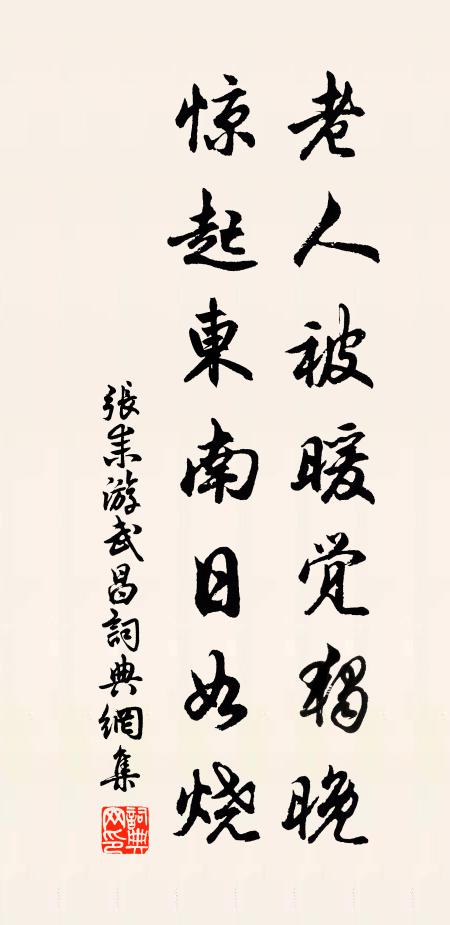 老人被暖觉獨晚
惊起東南日如烧
張耒游武昌詞典網集
詞典网印